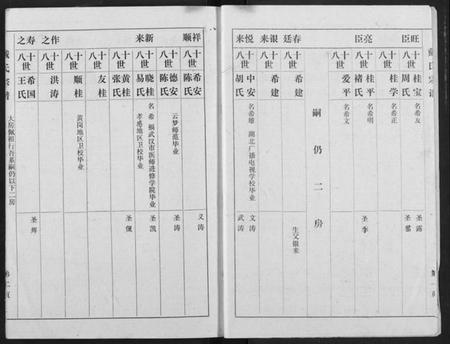 旺臣
十八世 桂宝 周氏 名希友 圣露
十八世 桂学 名希正
亮臣
十八世 桂平 褚氏 名希明 圣李
十八世 爱平 名希文
嗣仍二房
春廷
十八世 希建 生父银来
银来
十八世 希建
悦来
十八世 中安 胡氏 名希雄 湖北广播电视学校毕业 文涛 武涛
祥顺
十八世 希安 陈氏 文涛
十八世 德安 陈氏 云梦师范毕业 圣涛
新来
十八世 晓桂 易氏 名希 武汉市医师进修学院毕业 圣凯
十八世 黄桂 张氏 孝感地区卫校毕业 圣佩
十八世 友桂
十八世 顺桂 黄岗地区卫校毕业
作之
十八世 洪涛
寿之
十八世 希国 王氏 圣辉
大房佩祖行吉系嗣仍以下二房